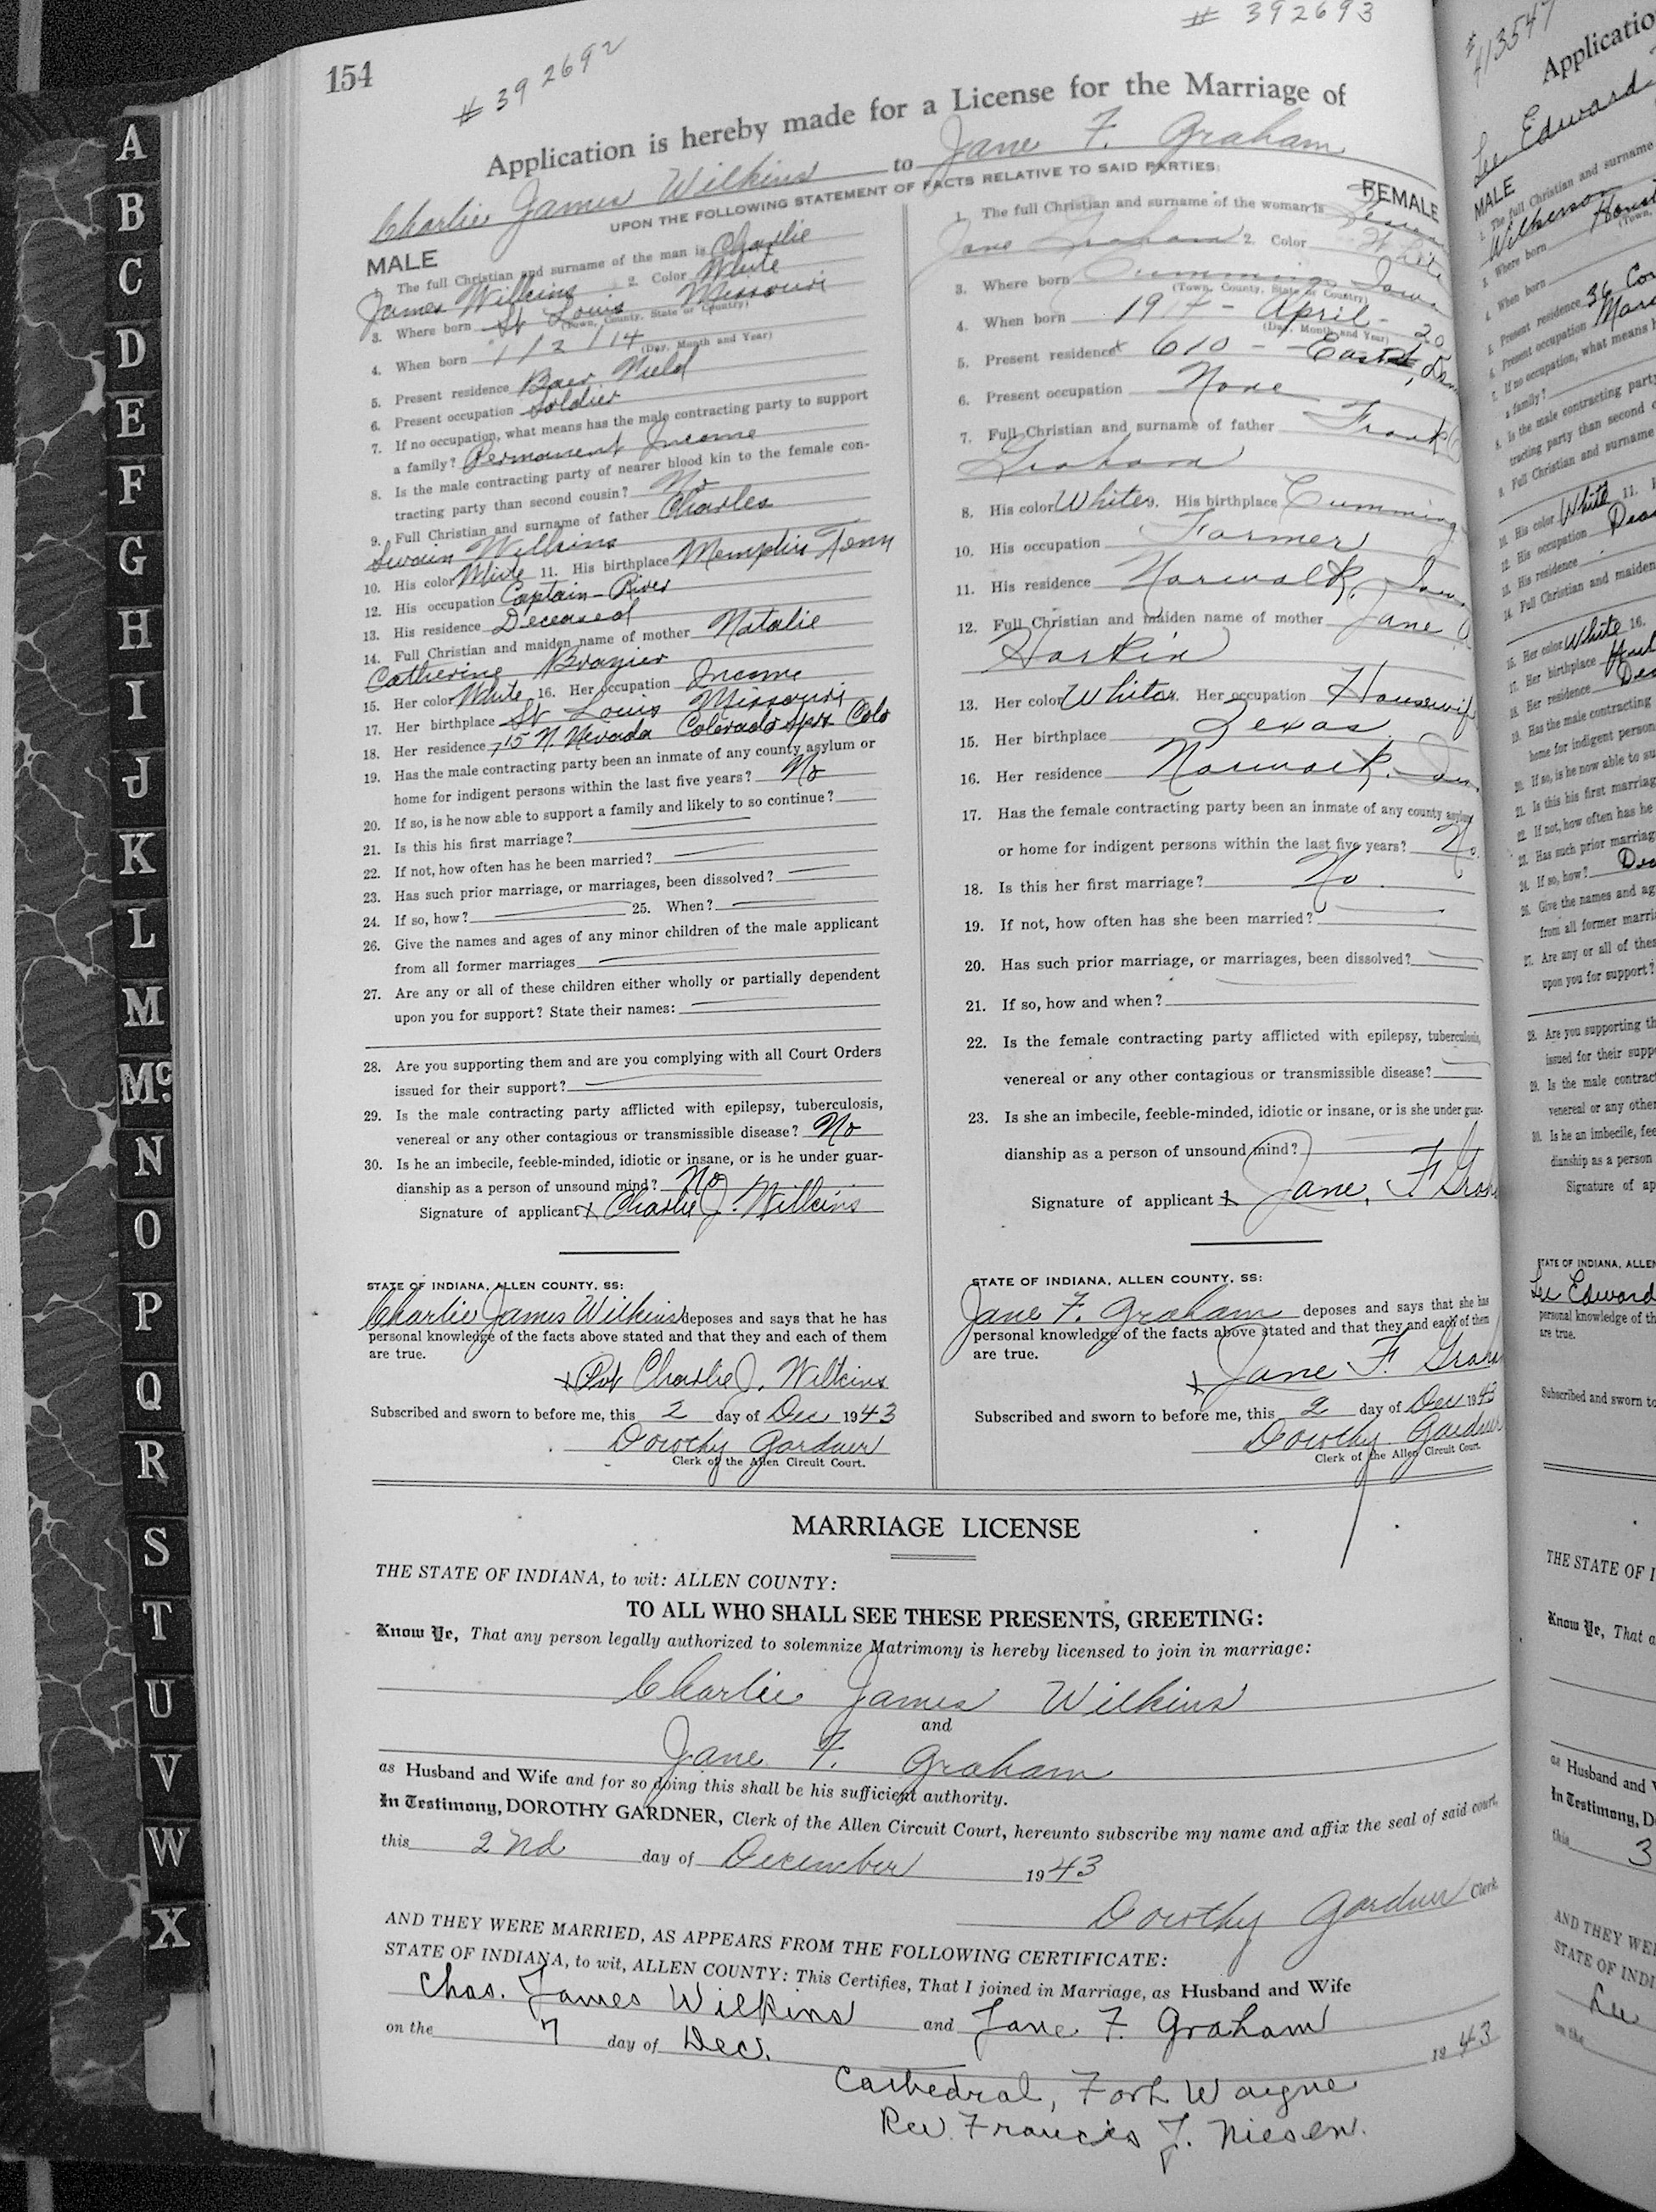 154
# 392692
# 392693
Application is hereby made for a License for the Marriage of
Charlie James Wilkins to Jane F. Graham
UPON THE FOLLOWING STATEMENT OF FACTS RELATIVE TO SAID PARTIES:
MALE
1. The full Christian and surname of the man is Charlie
James Wilkins 2. Color White
3. Where born St Louis Missouri
(Town, County, State or Country)
4. When born 1/2/14
(Day, Month and Year)
5. Present residence Baer Field
6. Present occupation Soldier
7. If no occupation, what means has the male contracting party to support
a family? Permanent Income
8. Is the male contracting party of nearer blood kin to the female con-
tracting party than second cousin? No
9. Full Christian and surname of father Charles
Swain Wilkins
10. His color White 11. His birthplace Memphis Tenn
12. His occupation Captain-River
13. His residence Deceased
14. Full Christian and maiden name of mother Natalie
Catherine Brazier
15. Her color White 16. Her occupation Income
17. Her birthplace St Louis Missouri
18. Her residence 715 N. Nevada Colorado Spgs Colo
19. Has the male contracting party been an inmate of any county asylum or
home for indigent persons within the last five years? No
20. If so, is he now able to support a family and likely to so continue?
21. Is this his first marriage?
22. If not, how often has he been married?
23. Has such prior marriage, or marriages, been dissolved?
24. If so, how? 25. When?
26. Give the names and ages of any minor children of the male applicant
from all former marriages
27. Are any or all of these children either wholly or partially dependent
upon you for support? State their names:
28. Are you supporting them and are you complying with all Court Orders
issued for their support?
29. Is the male contracting party afflicted with epilepsy, tuberculosis,
venereal or any other contagious or transmissible disease? No
30. Is he an imbecile, feeble-minded, idiotic or insane, or is he under guar-
dianship as a person of unsound mind? No
Signature of applicant x Charlie J. Wilkins
STATE OF INDIANA, ALLEN COUNTY, SS:
Charlie James Wilkins deposes and says that he has
personal knowledge of the facts above stated and that they and each of them
are true.
x Pvt Charlie J. Wilkins
Subscribed and sworn to before me, this 2 day of Dec 1943
Dorothy Gardner
Clerk of the Allen Circuit Court.
FEMALE
1. The full Christian and surname of the woman is
Jane Graham 2. Color White
3. Where born Cumming Iowa
(Town, County, State or Country)
4. When born 1917 - April - 20
(Day, Month and Year)
5. Present residence x 610 - East
6. Present occupation None
7. Full Christian and surname of father Frank
Graham
8. His color White 9. His birthplace Cumming
10. His occupation Farmer
11. His residence Norwalk, Iowa
12. Full Christian and maiden name of mother Jane
Harkin
13. Her color White 14. Her occupation Housewife
15. Her birthplace Texas
16. Her residence Norwalk.
17. Has the female contracting party been an inmate of any county asylum
or home for indigent persons within the last five years? No
18. Is this her first marriage? No
19. If not, how often has she been married?
20. Has such prior marriage, or marriages, been dissolved?
21. If so, how and when?
22. Is the female contracting party afflicted with epilepsy, tuberculosis,
venereal or any other contagious or transmissible disease?
23. Is she an imbecile, feeble-minded, idiotic or insane, or is she under guar-
dianship as a person of unsound mind?
Signature of applicant x Jane, F Graha
STATE OF INDIANA, ALLEN COUNTY, SS:
Jane F. Graham deposes and says that she has
personal knowledge of the facts above stated and that they and each of them
are true.
x Jane F. Graha
Subscribed and sworn to before me, this 2 day of Dec 1943
Dorothy Gardner
Clerk of the Allen Circuit Court.
MARRIAGE LICENSE
THE STATE OF INDIANA, to wit: ALLEN COUNTY:
TO ALL WHO SHALL SEE THESE PRESENTS, GREETING:
Know Ye, That any person legally authorized to solemnize Matrimony is hereby licensed to join in marriage:
Charlie James Wilkins
and
Jane F. Graham
as Husband and Wife and for so doing this shall be his sufficient authority.
In Testimony, DOROTHY GARDNER, Clerk of the Allen Circuit Court, hereunto subscribe my name and affix the seal of said court,
this 2nd day of December 1943
Dorothy Gardner Clerk
AND THEY WERE MARRIED, AS APPEARS FROM THE FOLLOWING CERTIFICATE:
STATE OF INDIANA, to wit, ALLEN COUNTY: This Certifies, That I joined in Marriage, as Husband and Wife
Chas. James Wilkins and Jane F. Graham
on the 7 day of Dec. 1943
Cathedral, Fort Wayne
Rev. Francis J. Niesen.
A
B
C
D
E
F
G
H
I
J
K
L
M
Mc.
N
O
P
Q
R
S
T
U
V
W
X
# 413547
Applicatio
Lee Edward
MALE
1. The full Christian and surname
Wilkinson
3. Where born
(Town,
4. When born
5. Present residence 36
6. Present occupation
7. If no occupation, what means h
a family?
8. Is the male contracting party
tracting party than second
9. Full Christian and surname
10. His color White 11.
12. His occupation
13. His residence
14. Full Christian and maiden
15. Her color White 16.
17. Her birthplace
18. Her residence
19. Has the male contracting
home for indigent person
20. If so, is he now able to su
21. Is this his first marriag
22. If not, how often has he
23. Has such prior marriag
24. If so, how?
26. Give the names and ag
from all former marri
27. Are any or all of thes
upon you for support?
28. Are you supporting th
issued for their supp
29. Is the male contrac
venereal or any othe
30. Is he an imbecile, fee
dianship as a person
Signature of ap
STATE OF INDIANA, ALLEN
Lee Edward
personal knowledge of th
are true.
Subscribed and sworn to
THE STATE OF I
Know Ye, That a
as Husband and
In Testimony, D
this 3
AND THEY WE
STATE OF INDI
Lee
on the